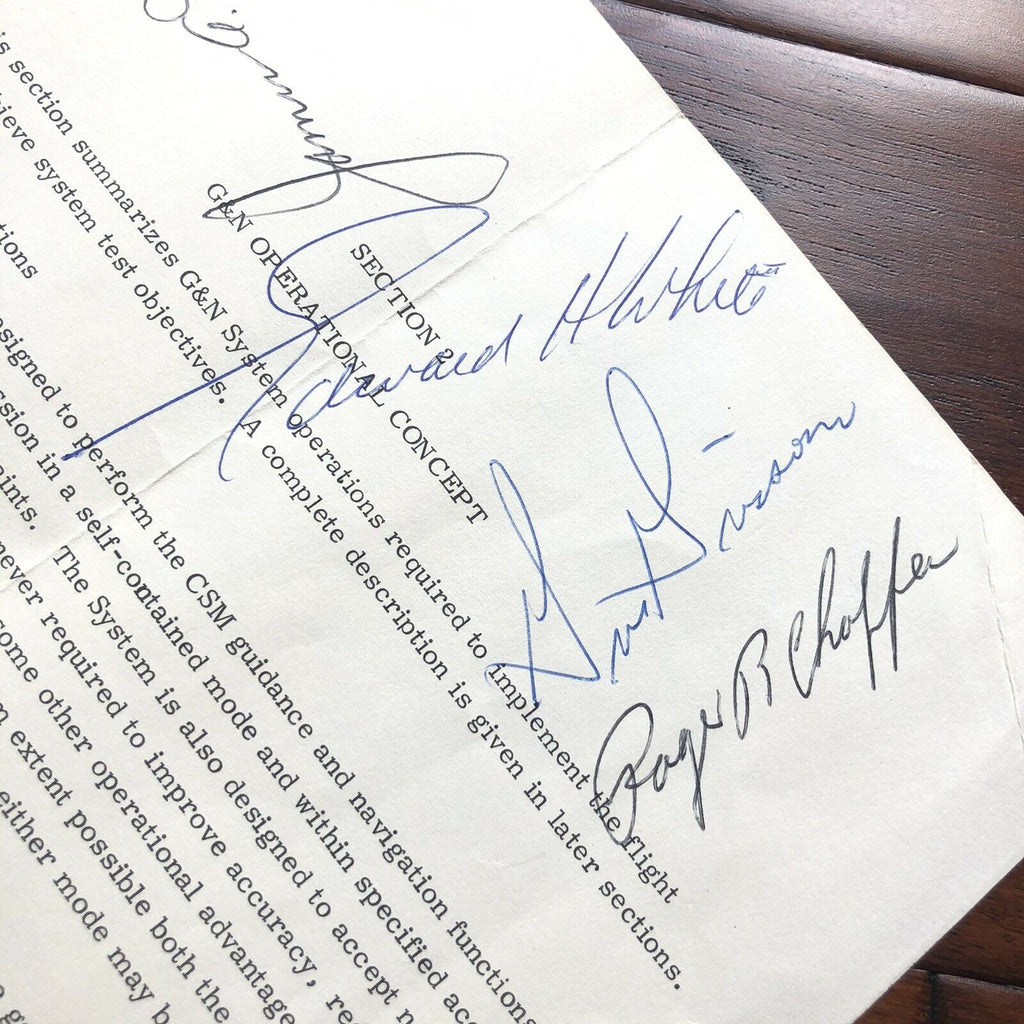 SECTION 2
G&N OPERATIONAL CONCEPT
is section summarizes G&N System operations required to implement the flight
ieve system test objectives. A complete description is given in later sections.
tions
esigned to perform the CSM guidance and navigation functions
ssion in a self-contained mode and within specified acc
ints. The System is also designed to accept n
never required to improve accuracy, re
ome other operational advantage
m extent possible both the
either mode may b
Edward H White II
Gus Grissom
Roger B Chaffee